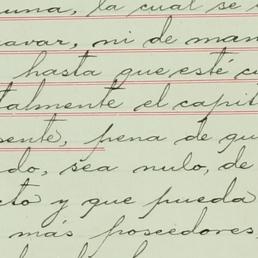 una, la cual se
avar, ni de man
hasta que esté c
talmente el capit
sente, pena de qu
do, sea nulo, de
cto y que pueda
más poseedores,